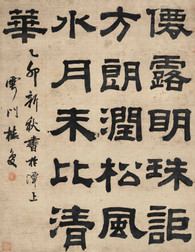 僊露明珠詎
方朗潤松風
水月未比清
華
乙卯新秋書於潭上